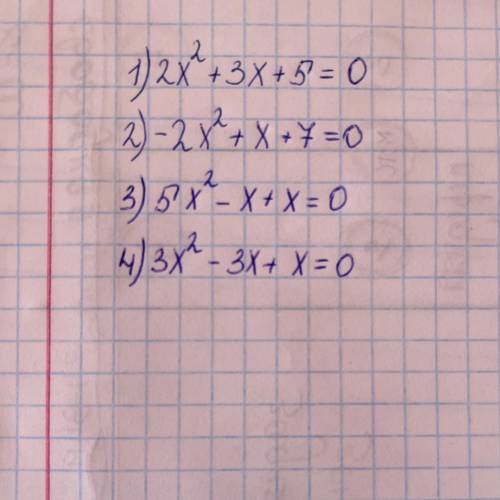 1) 2x² + 3x + 5 = 0
2) -2x² + x + 7 = 0
3) 5x² - x + x = 0
4) 3x² - 3x + x = 0